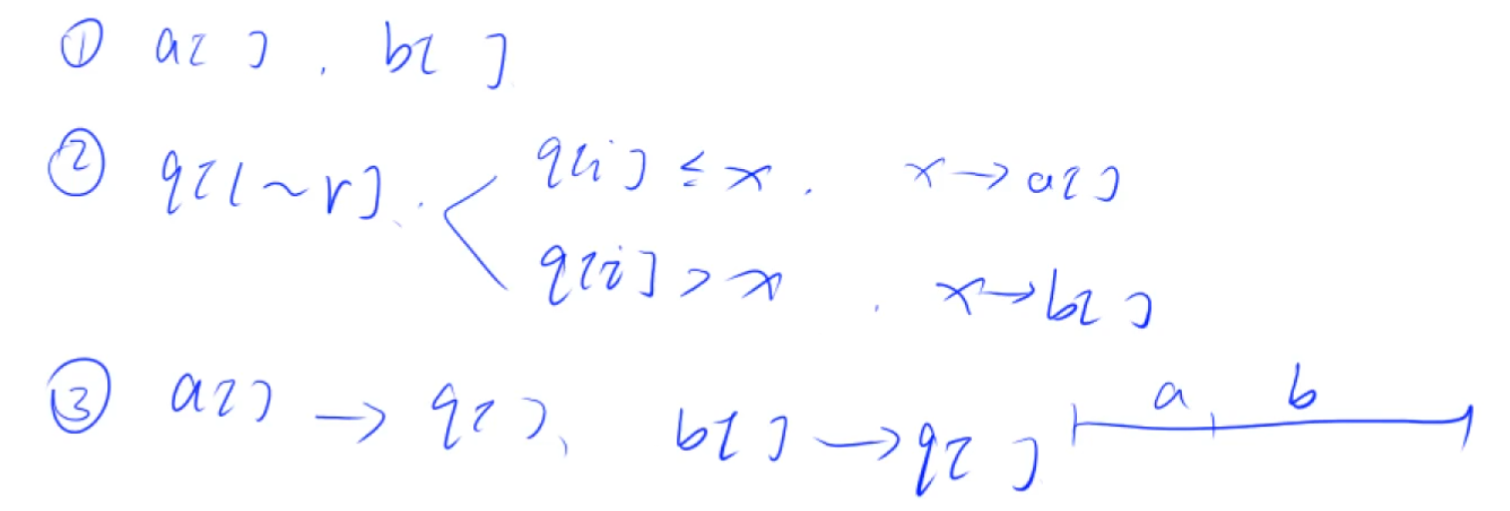 ① a[ ] , b[ ]
② q[l~r] . q[i] ≤ x . x → a[ ]
q[i] > x . x → b[ ]
③ a[ ] → q[ ]、 b[ ] → q[ ] a b